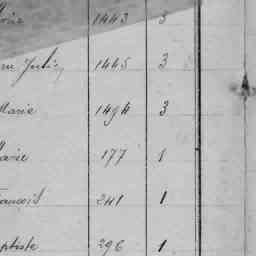 Marie 1443 3
Julie, 1445 3
Marie 1494 3
Marie 177 1
François 241 1
aptiste 296 1